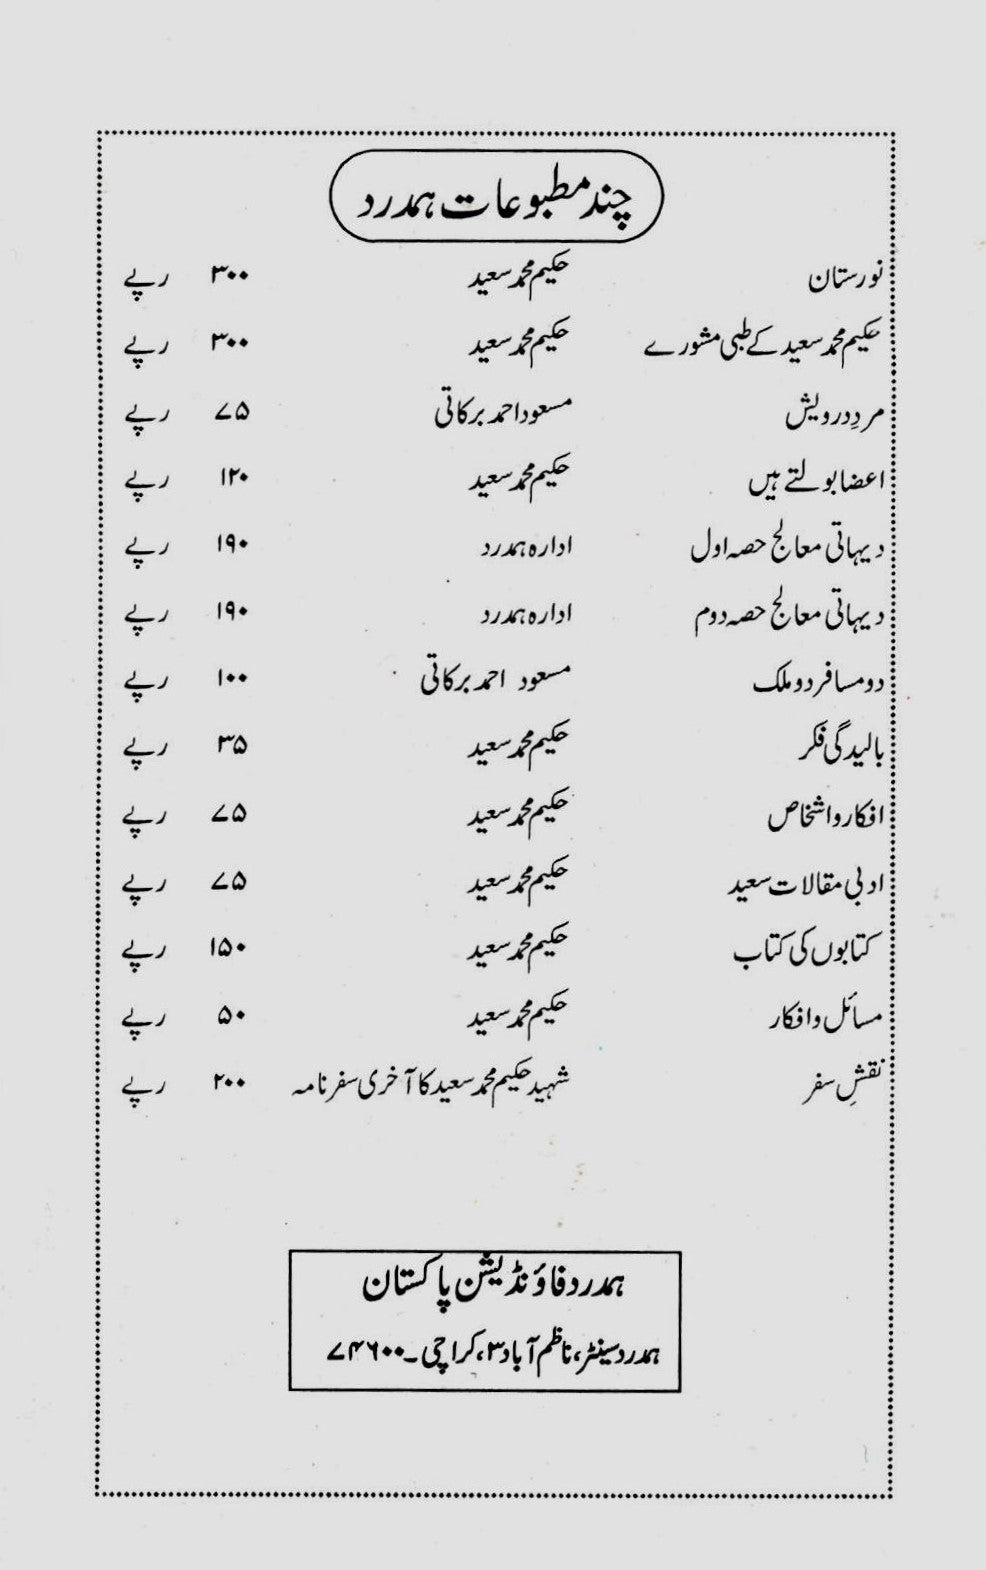 چند مطبوعات ہمدرد
نورستان حکیم محمد سعید ۳۰۰ رپے
حکیم محمد سعید کے طبی مشورے حکیم محمد سعید ۳۰۰ رپے
مردِ درویش مسعود احمد برکاتی ۷۵ رپے
اعضا بولتے ہیں حکیم محمد سعید ۱۲۰ رپے
دیہاتی معالج حصہ اول ادارہ ہمدرد ۱۹۰ رپے
دیہاتی معالج حصہ دوم ادارہ ہمدرد ۱۹۰ رپے
دو مسافر دو ملک مسعود احمد برکاتی ۱۰۰ رپے
بالیدگی فکر حکیم محمد سعید ۳۵ رپے
افکار و اشخاص حکیم محمد سعید ۷۵ رپے
ادبی مقالات سعید حکیم محمد سعید ۷۵ رپے
کتابوں کی کتاب حکیم محمد سعید ۱۵۰ رپے
مسائل و افکار حکیم محمد سعید ۵۰ رپے
نقشِ سفر شہید حکیم محمد سعید کا آخری سفر نامہ ۲۰۰ رپے
ہمدرد فاؤنڈیشن پاکستان
ہمدرد سینٹر، ناظم آباد ۳، کراچی۔ ۷۴۶۰۰